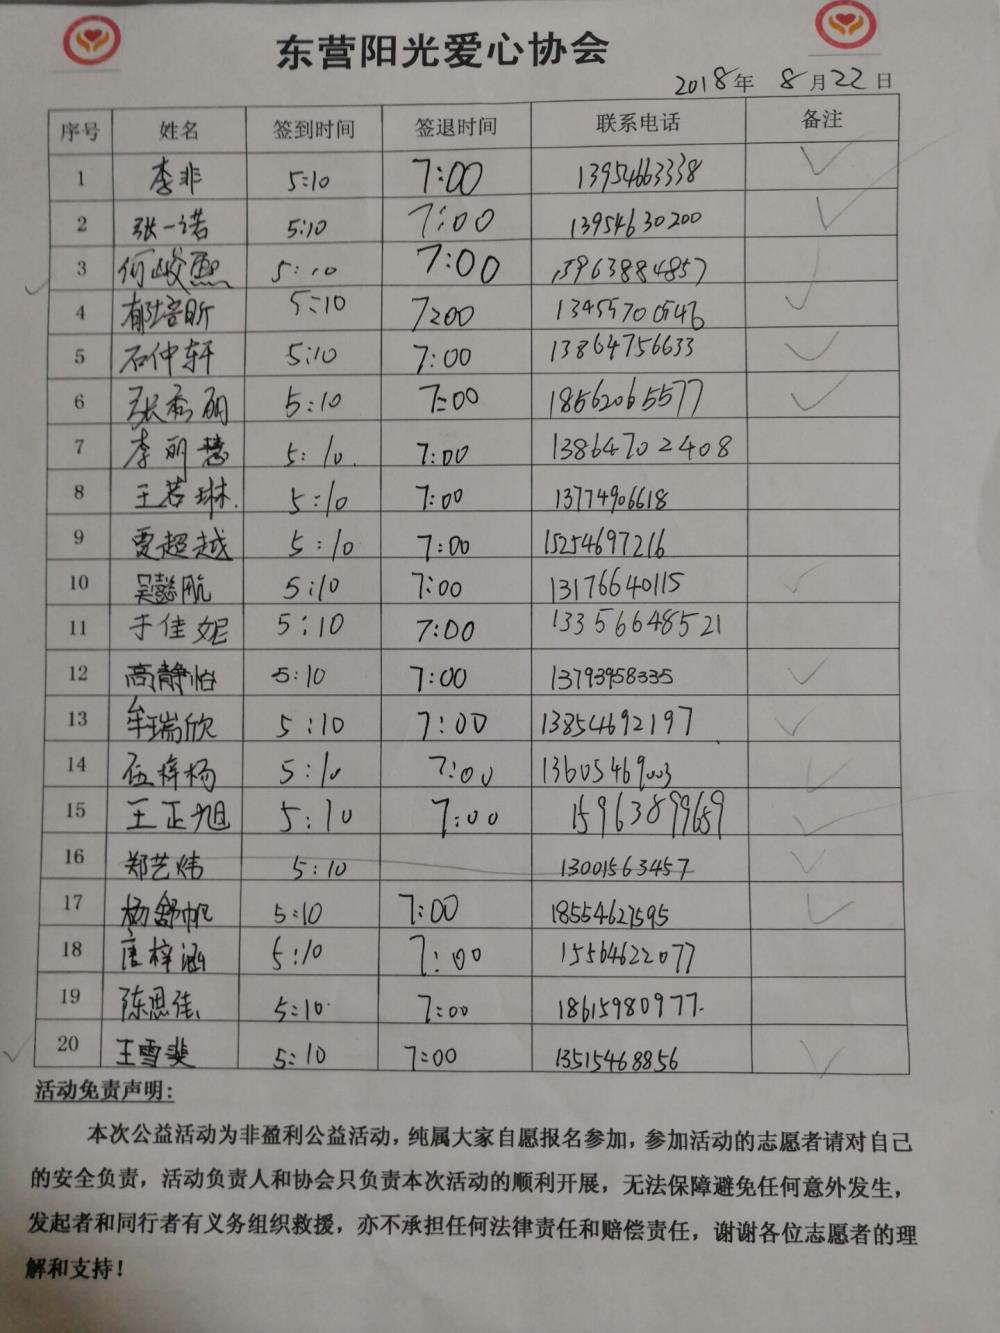 东营阳光爱心协会
2018年 8月22日
序号 姓名 签到时间 签退时间 联系电话 备注
1 李非 5:10 7:00 13954663338 ✓
2 张一诺 5:10 7:00 13954630200 ✓
3 何峻熙 5:10 7:00 13963884857
4 郁培昕 5:10 7:00 13455700546 ✓
5 石仲轩 5:10 7:00 13864756633 ✓
6 张秀丽 5:10 7:00 18562065577 ✓
7 李丽慧 5:10. 7:00 13864702408
8 王若琳. 5:10 7:00 13774906618
9 贾超越 5:10 7:00 15254697216
10 吴懿航 5:10 7:00 13176640115 ✓
11 于佳妮 5:10 7:00 13356648521
12 高静怡 5:10 7:00 13793958335 ✓
13 牟瑞欣 5:10 7:00 13854692197 ✓
14 伍梓杨 5:10 7:00 13605469003 ✓
15 王正旭 5:10 7:00 15963899659 ✓
16 郑艺炜 5:10 13001563457 ✓
17 杨舒帆 5:10 7:00 18554627595 ✓
18 唐梓涵 5:10 7:00 15564622077
19 陈思佳 5:10. 7:00 18615980977.
20 王雪斐 5:10 7:00 13515468856 ✓
活动免责声明:
本次公益活动为非盈利公益活动，纯属大家自愿报名参加，参加活动的志愿者请对自己
的安全负责，活动负责人和协会只负责本次活动的顺利开展，无法保障避免任何意外发生，
发起者和同行者有义务组织救援，亦不承担任何法律责任和赔偿责任，谢谢各位志愿者的理
解和支持！